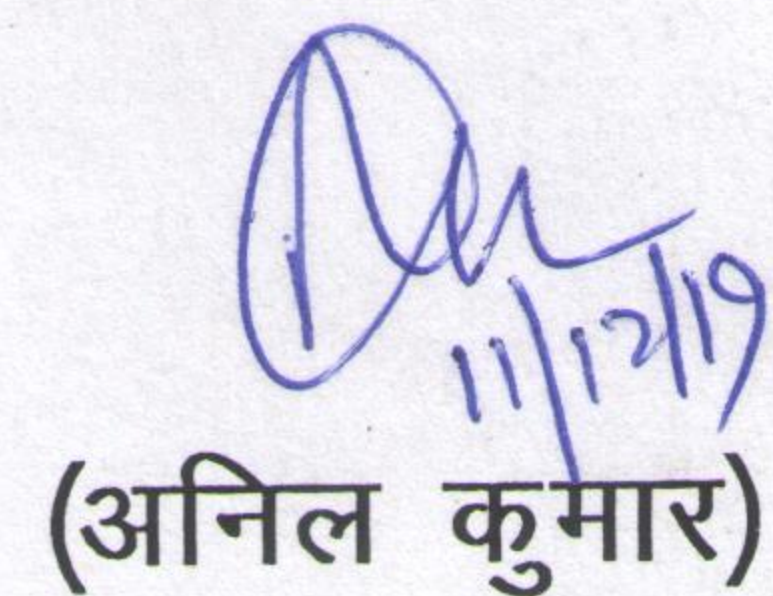 11/12/19
(अनिल कुमार)